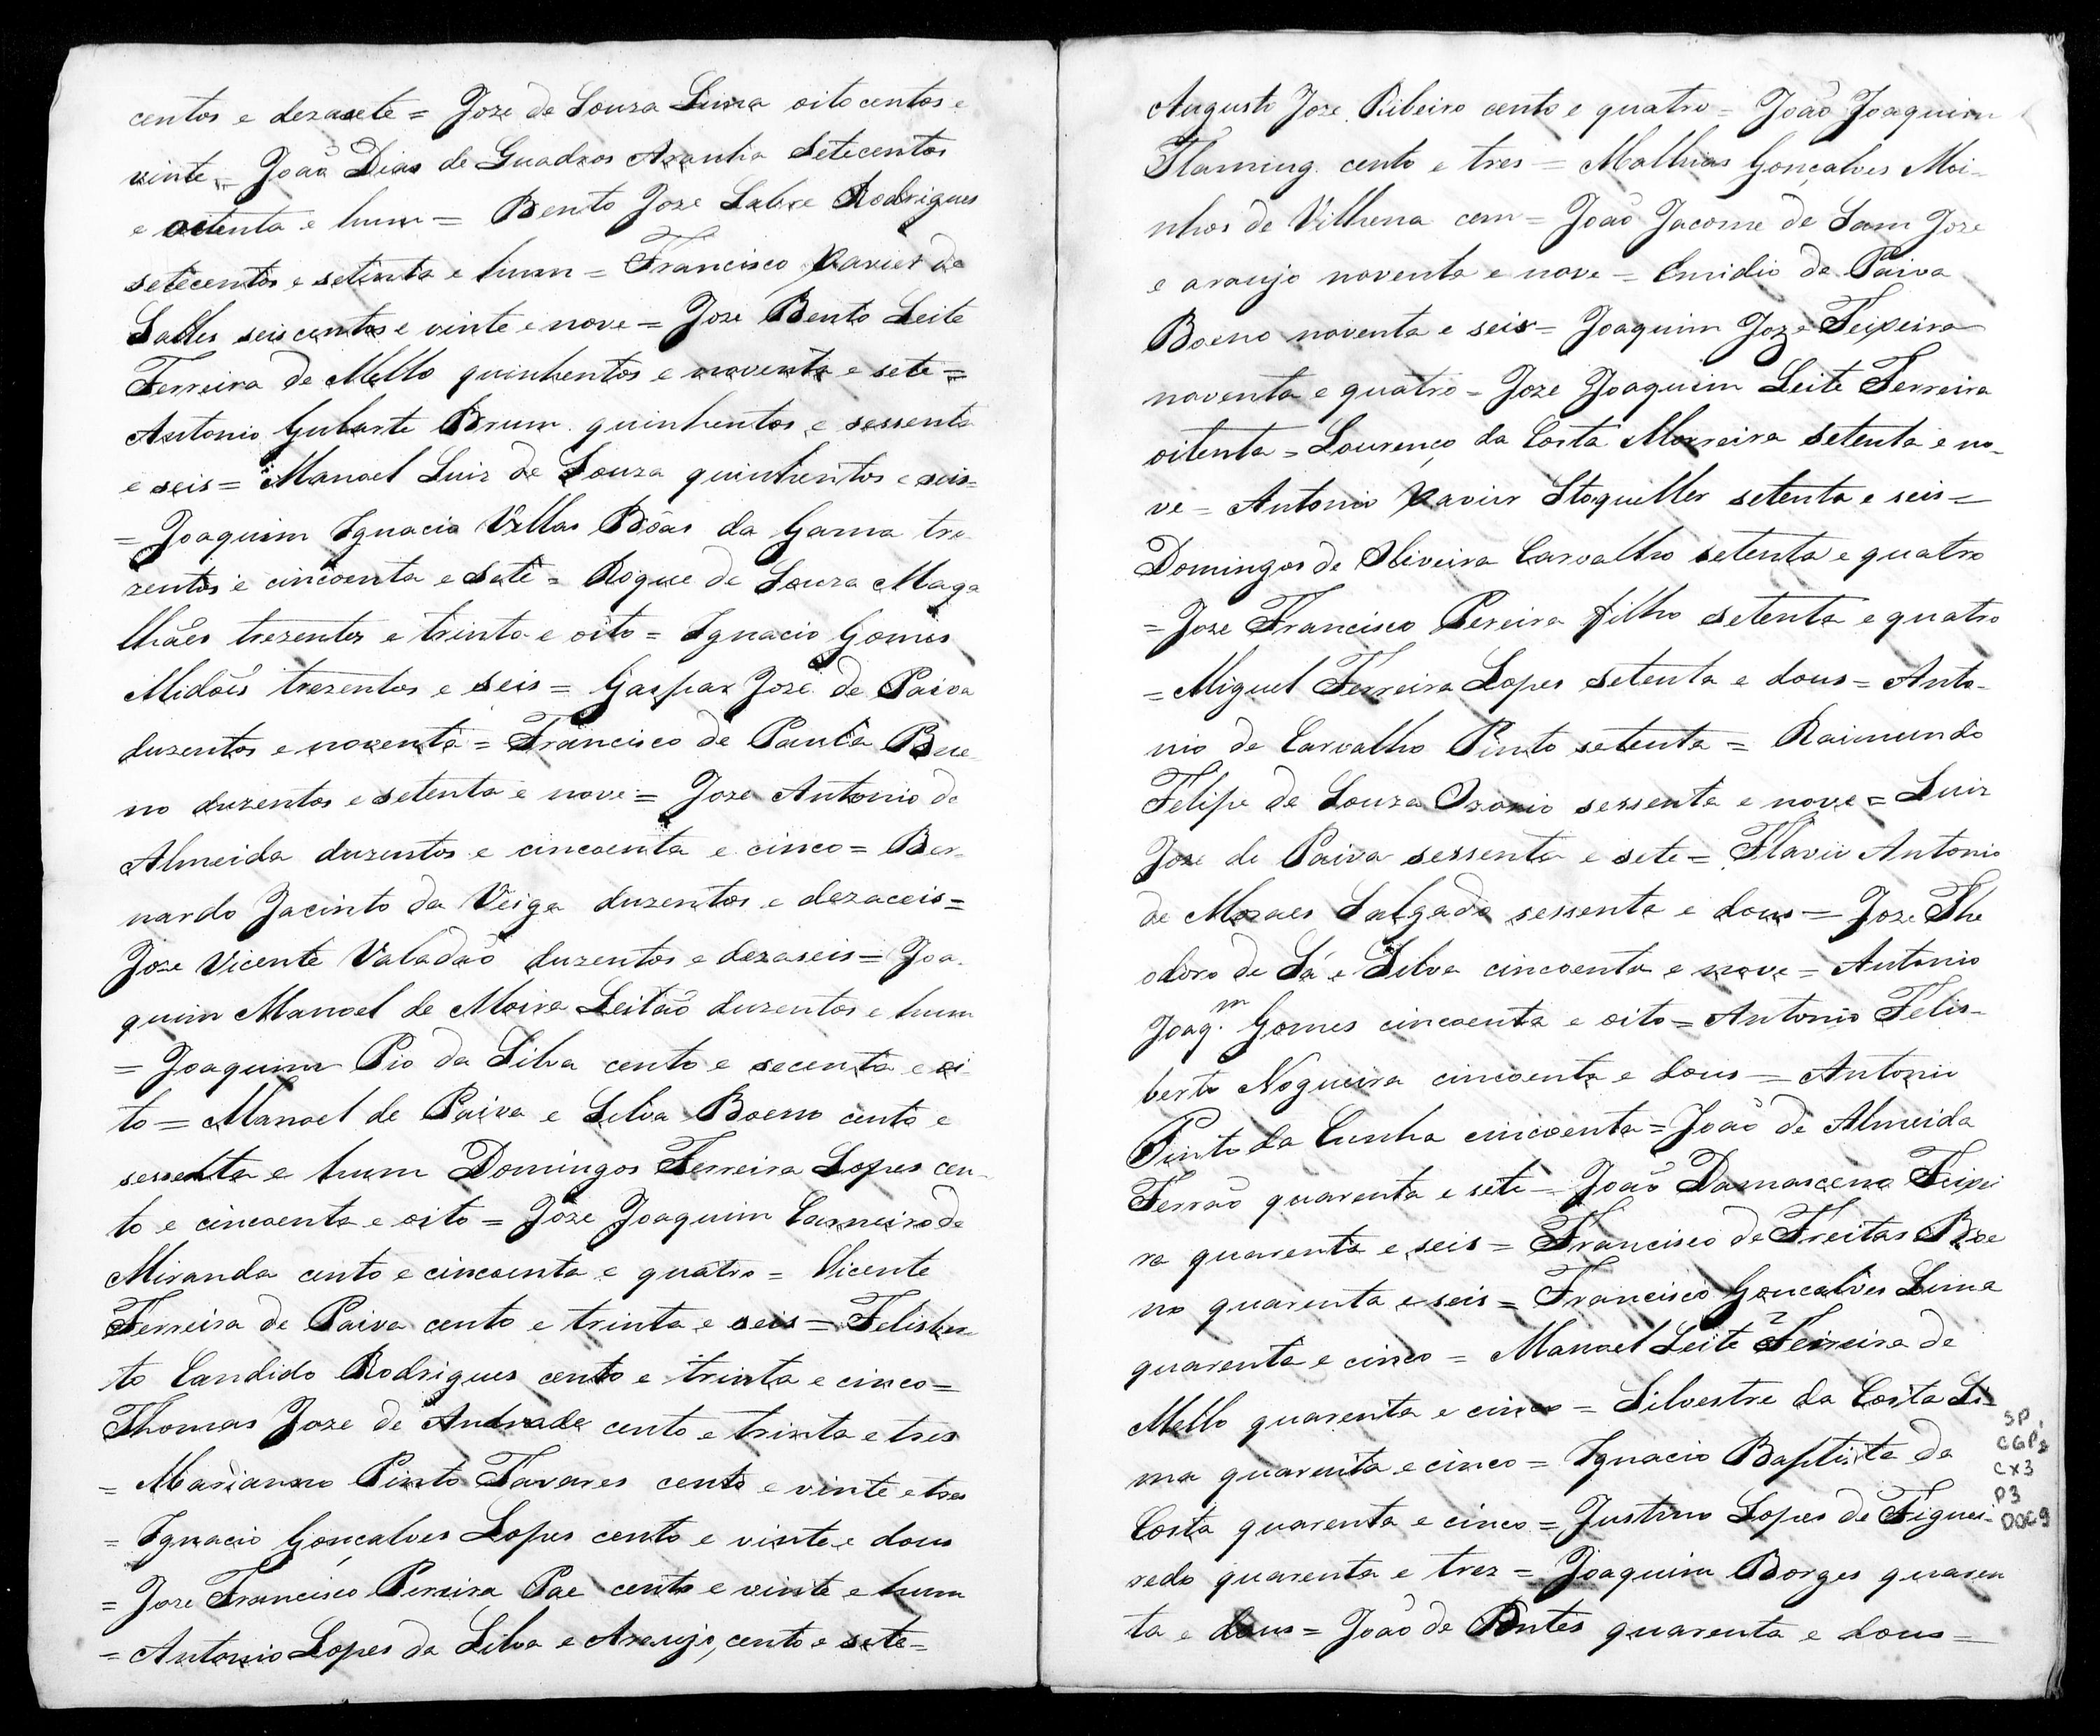 centos e dezasete = Joze de Souza Lima oito centos e
vinte = João Dias de Quadros Aranha Setecentos
e oitenta e hum = Bento Joze Labre Rodrigues
setecentos e setenta e hum = Francisco Xavier de
Salles seis centos e vinte e nove = Joze Bento Leite
Ferreira de Mello quinhentos e noventa e sete =
Antonio Gularte Brum quinhentos e sessenta
e seis = Manoel Luiz de Souza quinhentos e seis =
= Joaquim Ignacio Villas Bôas da Gama tre
zentos e cincoenta e Sete = Roque de Souza Maga
lhães trezentos e trinta e oito = Ignacio Gomes
Midões trezentos e seis = Gaspar Joze de Paiva
duzentos e noventa = Francisco de Paula Bue
no duzentos e setenta e nove = Joze Antonio de
Almeida duzentos e cincoenta e cinco = Ber
nardo Jacinto da Veiga duzentos e dezaceis =
Joze Vicente Valadaõ duzentos e dezaseis = Joa
quim Manoel de Moira Leitaõ duzentos e hum
= Joaquim Pio da Silva cento e secenta e oi
to = Manoel de Paiva e Silva Boeno cento e
sessenta e hum Domingos Ferreira Lopes cen
to e cincoenta e oito = Joze Joaquim Carneiro de
Miranda cento e cincoenta e quatro = Vicente
Ferreira de Paiva cento e trinta e seis = Felisber
to Candido Rodrigues cento e trinta e cinco =
Thomas Joze de Andrade cento e trinta e tres
= Marianno Pinto Tavares cento e vinte e tres
= Ignacio Gonçalves Lopes cento e vinte e dous
= Joze Francisco Pereira Pae cento e vinte e hum
= Antonio Lopes da Silva e Araujo, cento e sete =
Augusto Joze Ribeiro cento e quatro = João Joaquim
Flaming cento e tres = Mathias Gonçalves Moi-
nhos de Vilhena cem = João Jacome de Sam Joze
e araujo noventa e nove = Emidio de Paiva
Boeno noventa e seis = Joaquim Joze Teixeira
noventa e quatro = Joze Joaquim Leite Ferreira
oitenta = Lourenço da Costa Morreira Setenta e no-
ve = Antonio Xavier Stoquller setenta e seis =
Domingos de Oliveira Carvalho setenta e quatro
= Joze Francisco Pereira filho Setenta e quatro
= Miguel Ferreira Lopes Setenta e dous = Anto-
nio de Carvalho Pinto setenta = Raimundo
Felipe de Souza Ozorio sessenta e nove = Luiz
Joze de Paiva sessenta e sete = Flavio Antonio
de Moraes Salgado sessenta e dous = Joze The
odoro de Sá e Silva cincoenta e nove = Antonio
Joaq.m Gomes cincoenta e oito = Antonio Felis-
berto Nogueira cincoenta e dous = Antonio
Pinto da Cunha cincoenta = João de Almeida
Ferrão quarenta e sete = João Damasceno Teixei
ra quarenta e seis = Francisco de Freitas Boe
no quarenta e seis = Francisco Goncalves Lima
quarenta e cinco = Manoel Leite Ferreira de
Mello quarenta e cinco = Silvestre da Costa Li-
ma quarenta e cinco = Ignacio Baptista da
Costa quarenta e cinco = Justino Lopes de Figuei-
redo quarenta e trez = Joaquim Borges quaren
ta e dous = João de Pontes quarenta e dous =
SP
CGP2
CX3
P3
DOC9